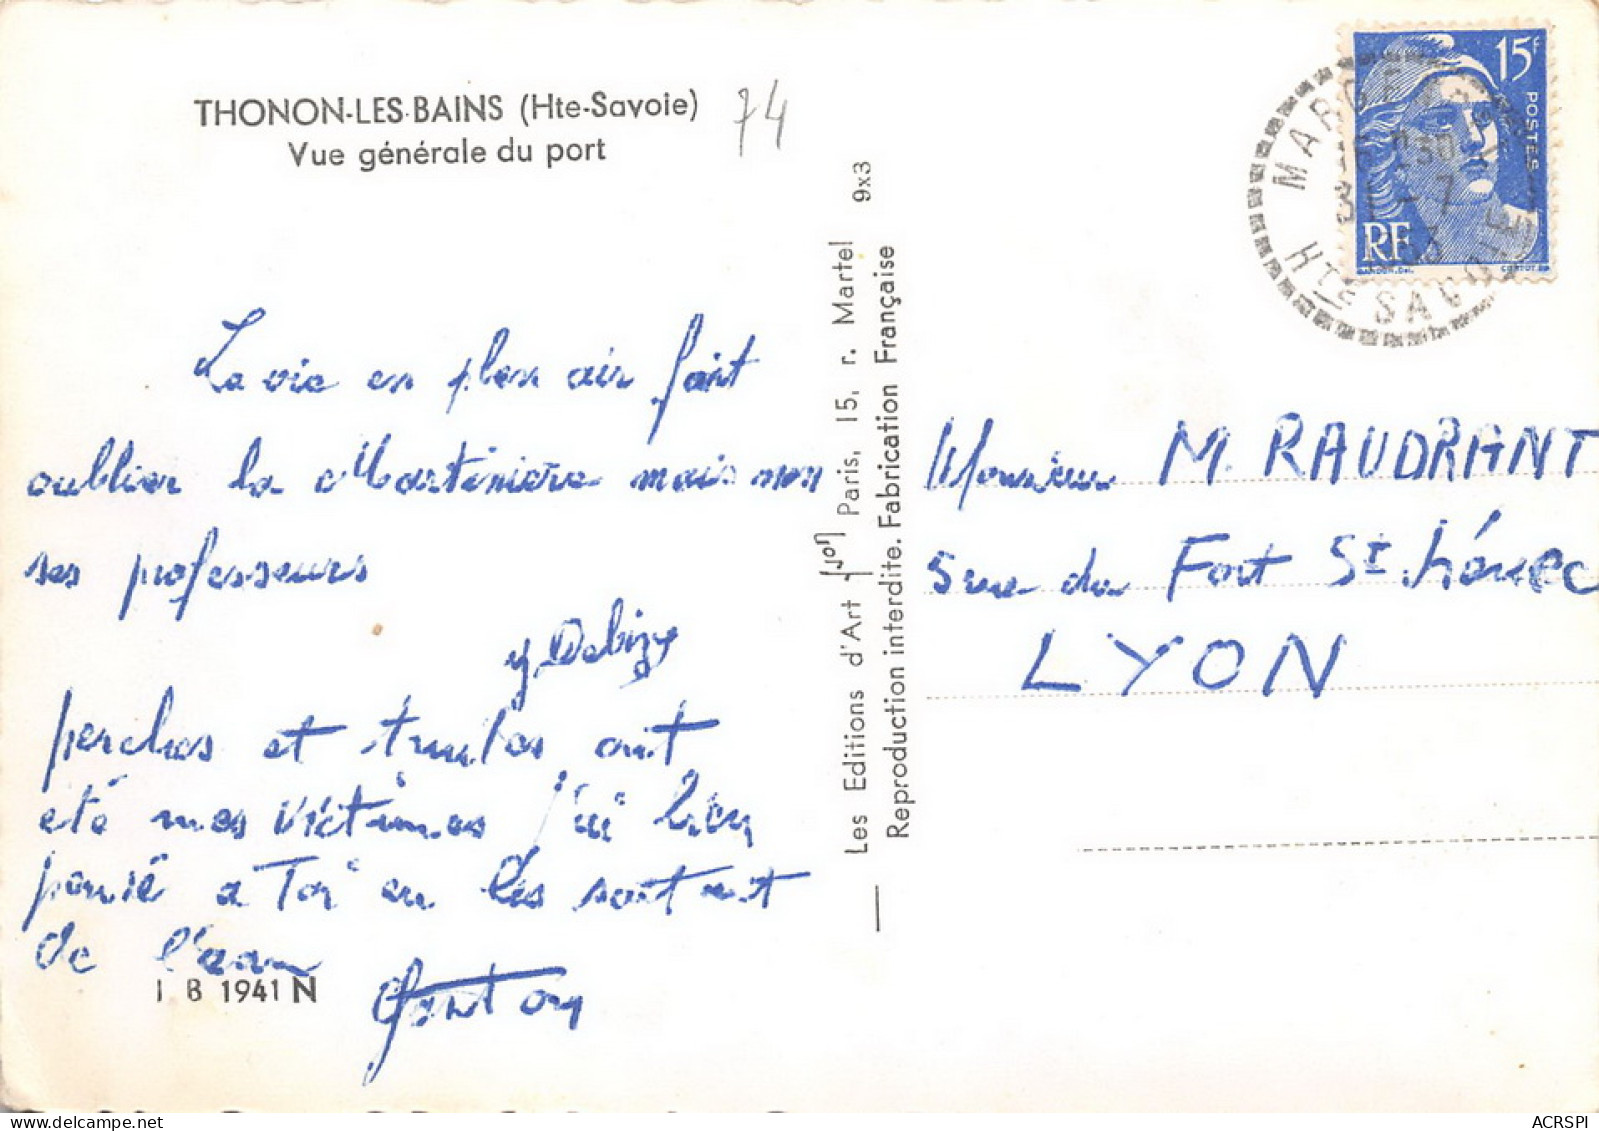 THONON-LES-BAINS (Hte-Savoie)
Vue générale du port
74
La vie en plein air fait
oublier la Martinière mais non
ses professeurs
y Debize
perches et truites ont
été mes victimes j'ai bien
pensé a Toi en les sortant
de l'eau
I B 1941 N
Les Editions d'Art Paris, 15, r. Martel 9x3
Reproduction interdite. Fabrication Française
15F
POSTES
RF
GANDON.Del.
CORTOT.
31 - 7
Hte SAVOIE
Monsieur M. RAUDRANT
5 rue du Fort St Irénée
LYON
ACRSPI